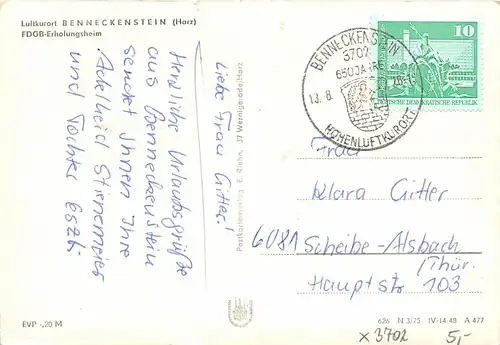 Luftkurort BENNECKENSTEIN (Harz)
FDGB-Erholungsheim
Liebe Frau Citter!
Herzliche Urlaubsgrüße
aus Benneckenstein
sendet Ihnen Ihre
Adelheid Stienemeier
und Tochter
EVP -,20 M
Postkartenverlag E. Riehn, 37 Wernigerode/Harz
BENNECKENSTEIN
3702
650 JAHRE
13. 8.
HÖHENLUFTKURORT
10
DEUTSCHE DEMOKRATISCHE REPUBLIK
Frau
Klara Citter
6081 Scheibe-Alsbach
/Thür.
Hauptstr 103
626 N 3/75 IV-14-48 A 477
x 3702 5,-